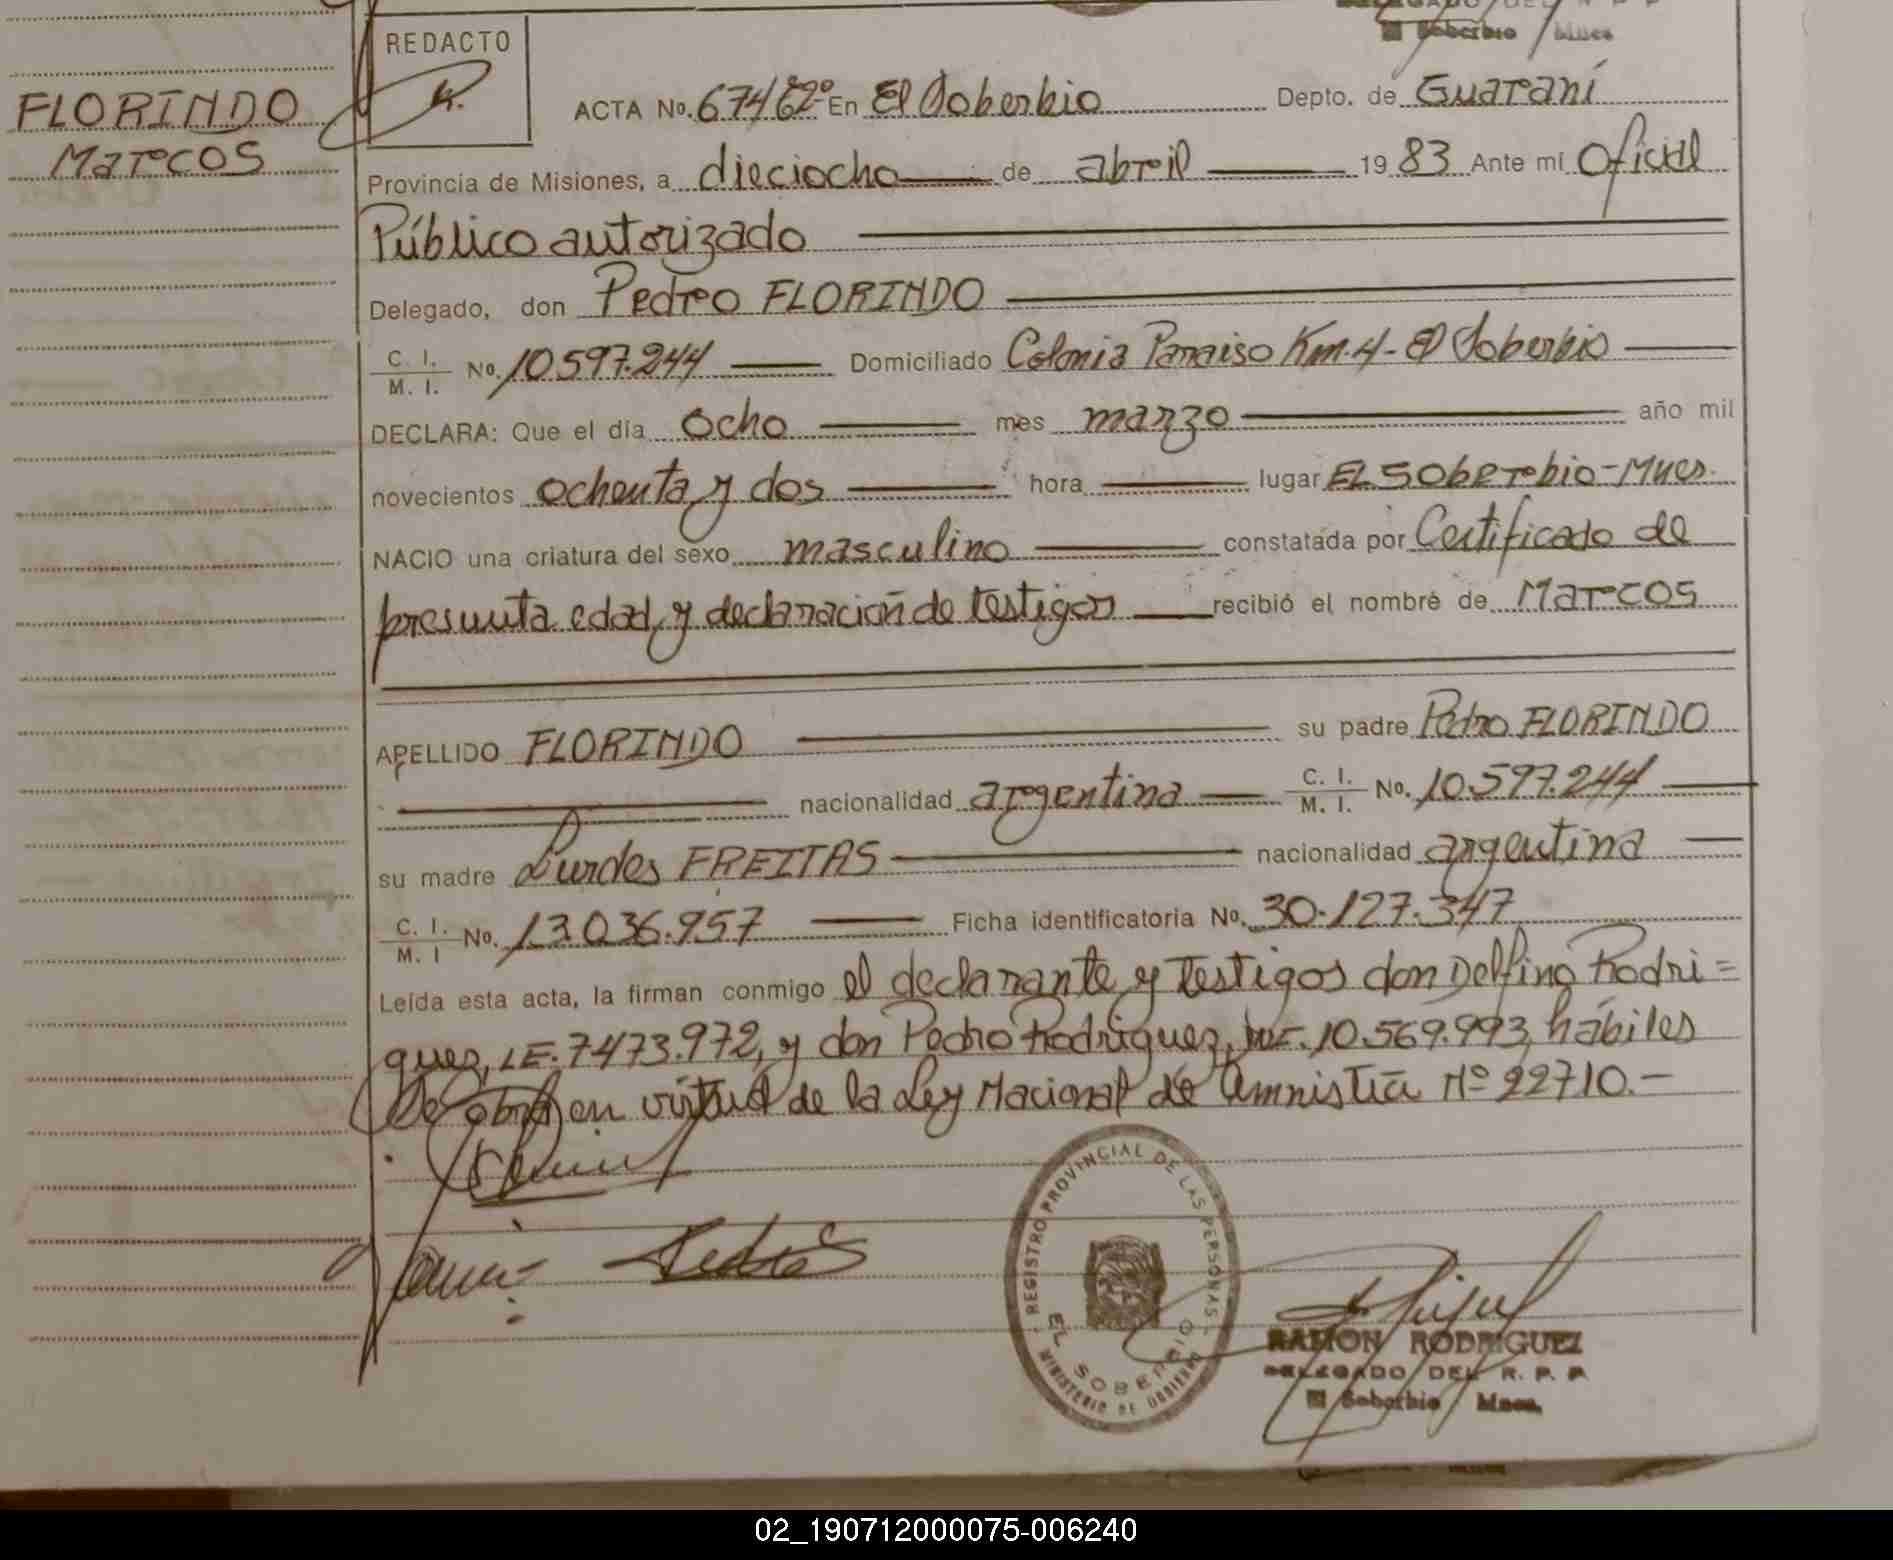 REDACTO
FLORINDO
MARCOS
ACTA No. En El Soberbio Depto. de Guaraní
Provincia de Misiones, a dieciocho de abril 1983 Ante mi Oficial
Público autorizado
Delegado, don Pedro FLORINDO
C. I. / M. I. No. 10.597.244 Domiciliado Colonia Paraiso Km.4- El Soberbio
DECLARA: Que el día ocho mes marzo año mil
novecientos ochenta y dos hora lugar EL SOBERbio-Mnes.
NACIO una criatura del sexo masculino constatada por Certificado de
presunta edad, y declaración de testigos recibió el nombre de MARCOS
APELLIDO FLORINDO su padre Pedro FLORINDO
nacionalidad argentina C. I. / M. I. No. 10.597.244
su madre Lurdes FREITAS nacionalidad argentina
C. I. / M. I No. 13.036.957 Ficha identificatoria No. 30.127.347
Leída esta acta, la firman conmigo el declarante y testigos don Delfino Rodri=
guez, LE. 7473.972, y don Pedro Rodriguez, 10.569.993, hábiles
Se obró en virtud de la Ley Nacional de Amnistía Nº 22710.-
REGISTRO PROVINCIAL DE LAS PERSONAS
EL SOBERBIO
MINISTERIO DE GOBIERNO
RAMON RODRIGUEZ
DELEGADO DEL R. P. P
El Soberbio Mnes.
02_190712000075-006240